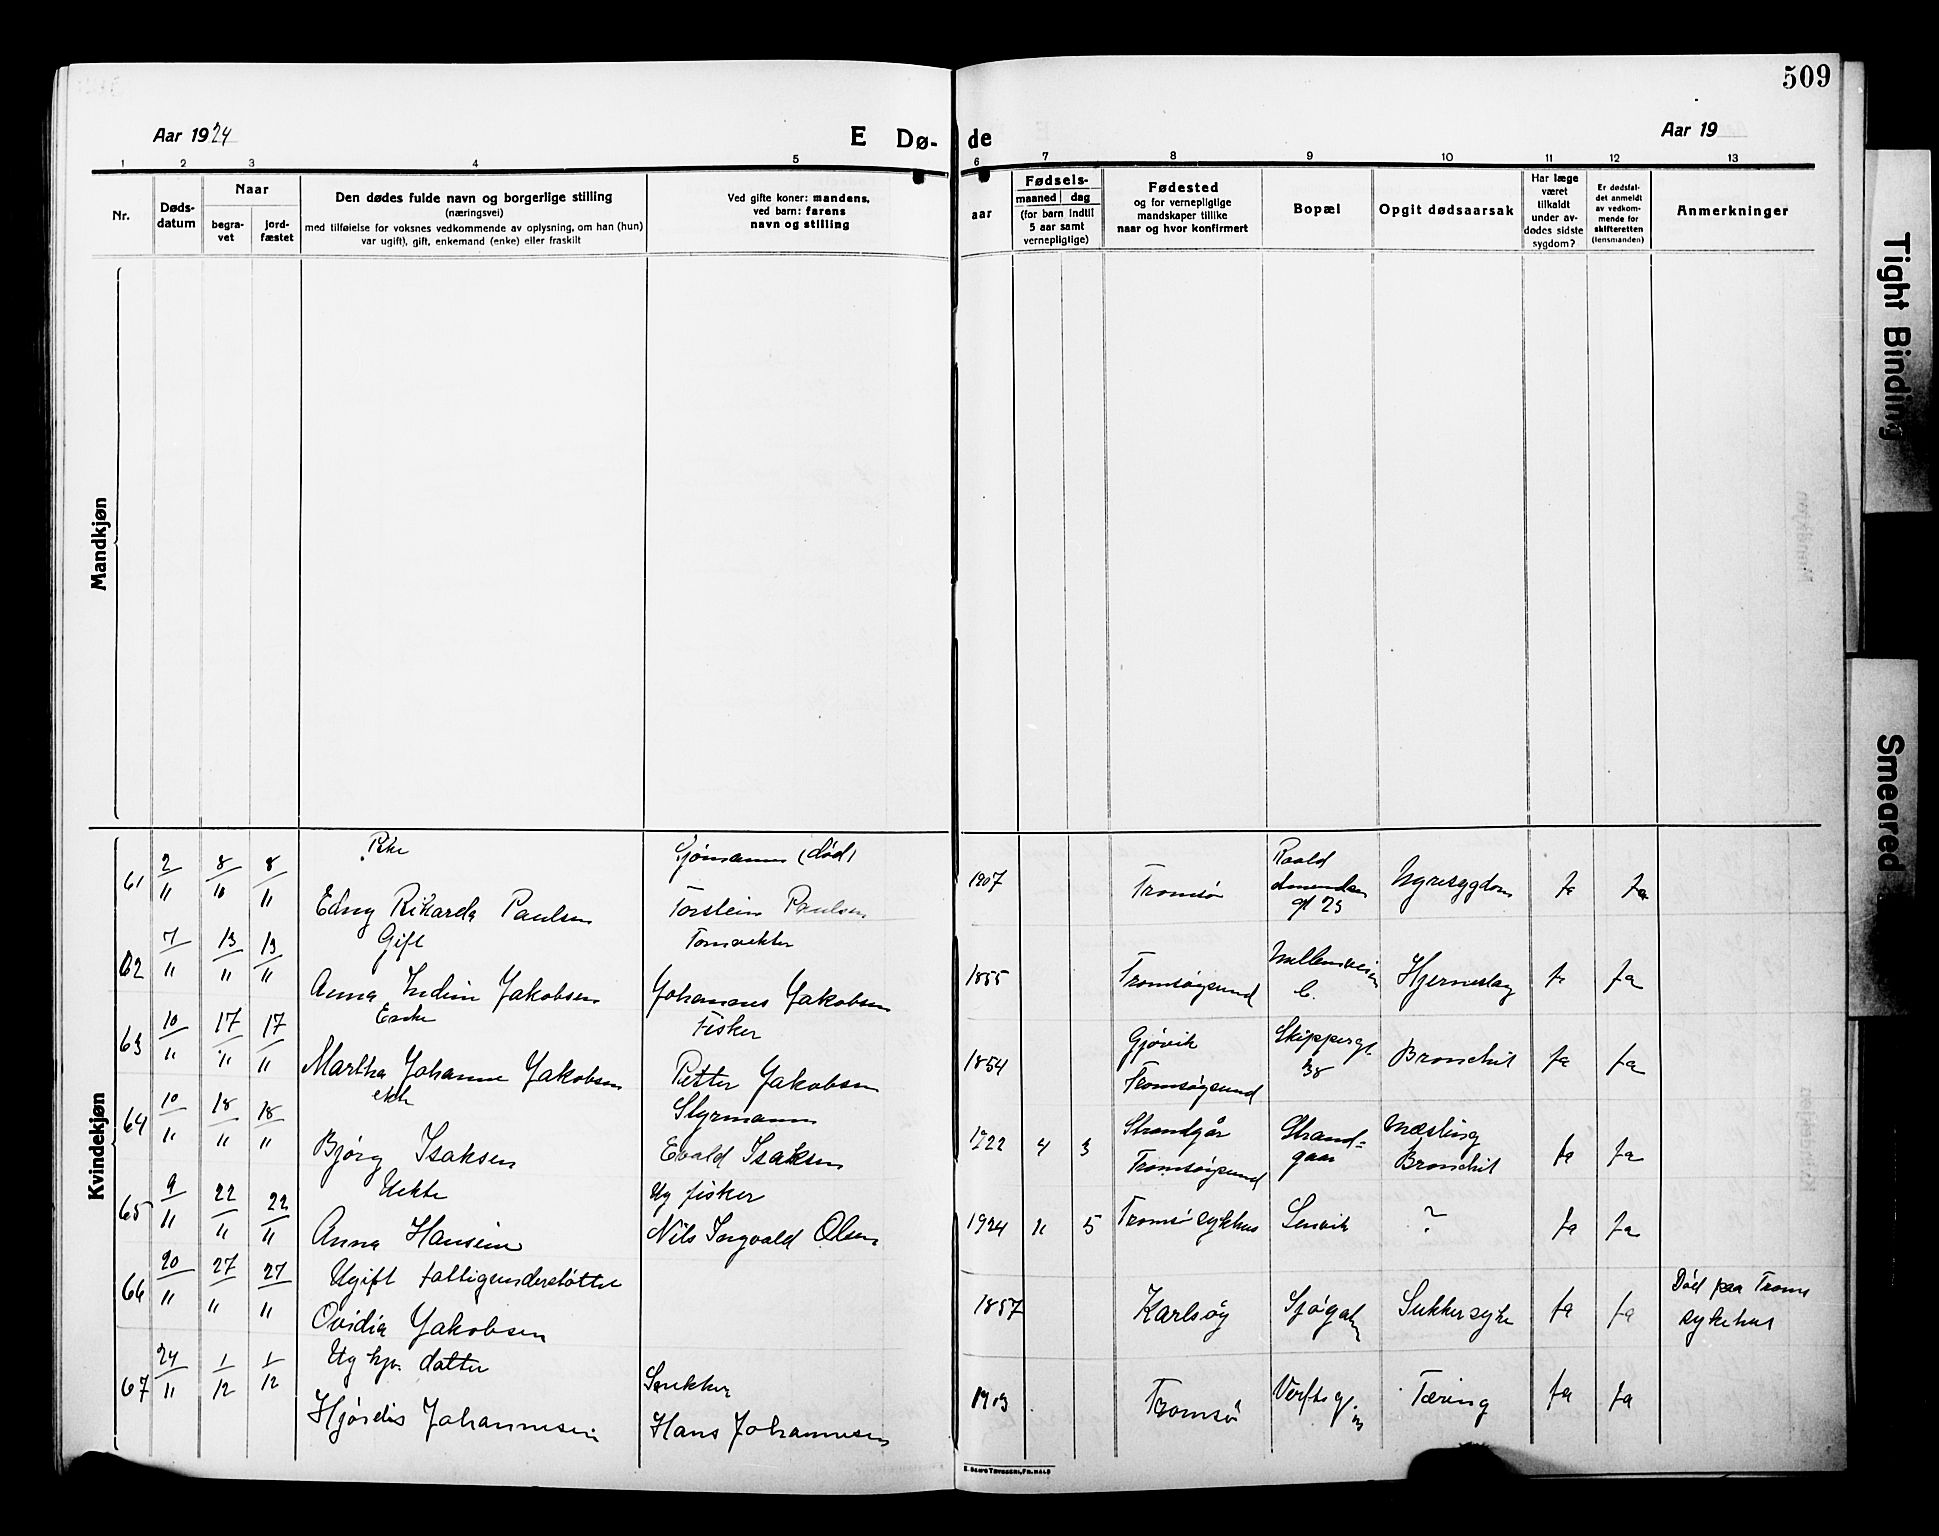 509
Aar 1924
E Dø-
de
Aar 19
1 2 3 4 5 6 7 8 9 10 11 12 13
Nr.
Døds-
datum
Naar
begra-
vet
jord-
fæstet
Den dødes fulde navn og borgerlige stilling
(næringsvei)
med tilføielse for voksnes vedkommende av oplysning, om han (hun)
var ugift), gift, enkemand (enke) eller fraskilt
Ved gifte koner: mandens,
ved barn: farens
navn og stilling
aar
Fødsels-
maaned dag
(for barn indtil
5 aar samt
vernepligtige)
Fødested
og for vernepligtige
mandskaper tillike
naar og hvor konfirmert
Bopæl
Opgit dødsaarsak
Har læge
været
tilkaldt
under av-
dødes sidste
sygdom?
Er dødsfal-
det anmeldt
av vedkom-
mende for
skifteretten
(lensmanden)
Anmerkninger
Mandkjøn
Kvindekjøn
61 2/11 8/11 8/11
Pike
Edny Rikarda Paulsen
Sjømann (død)
Torstein Paulsen
1907
Tromsø
Roald
Amundsen
gt 25
Nyresygdom
Ja
Ja
62 7/11 13/11 13/11
Gift
Anna Indim Jakobsen
Johannes Jakobsen
1855
Tromsøysund
Hjerneslag
Ja
Ja
63 10/11 17/11 17/11
Enke
Martha Johanne Jakobsen
Fisker
Petter Jakobsen
1854
Gjøvik
Tromsøysund
Skippergt
38
Bronchit
Ja
Ja
64 10/11 18/11 18/11
ekte
Bjørg Isaksen
Styrmann
Evald Isaksen
1922 4 3
Strandgår
Tromsøysund
Strand=
gaar
Mæsling
Bronchit
Ja
Ja
65 9/11 22/11 22/11
Uekte
Anna Hansine
Ug fisker
Nils Ingvald Olsen
1924 11 5
Tromsø sykhus
Lenvik
?
Ja
Ja
66 20/11 27/11 27/11
Ugift fattigunderstøttet
Ovidia Jakobsen
1857
Karlsøy
Sjøgatn
Sukkersyke
Ja
Ja
Død paa Troms
sykehus
67 24/11 1/12 1/12
Ug hjv. datter
Hjørdis Johannesen
Snekker
Hans Johannesen
Tromsø
Verftsg
Tæring
Ja
Ja
Tight Binding
Smeared